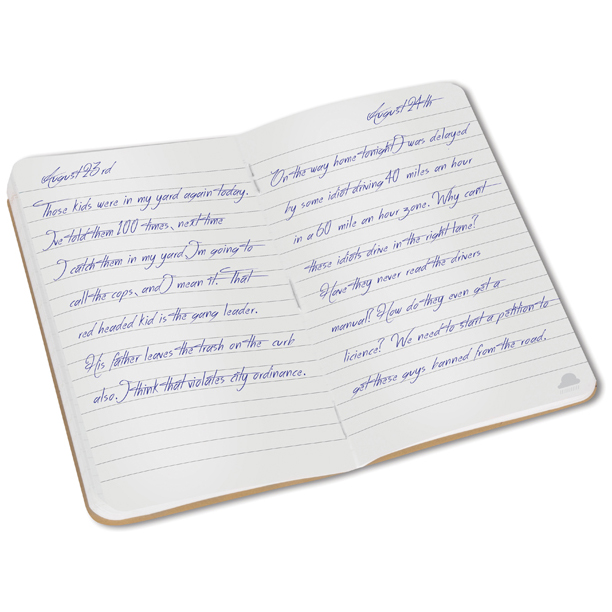 August 23rd
Those kids were in my yard again today.
I've told them 100 times, next time
I catch them in my yard I'm going to
call the cops, and I mean it. That
red headed kid is the gang leader.
His father leaves the trash on the curb
also. I think that violates city ordinance.
August 24th
On the way home tonight I was delayed
by some idiot driving 40 miles an hour
in a 60 mile an hour zone. Why cant
these idiots drive in the right lane?
Have they never read the drivers
manual? How do they even get a
licience? We need to start a petition to
get these guys banned from the road.